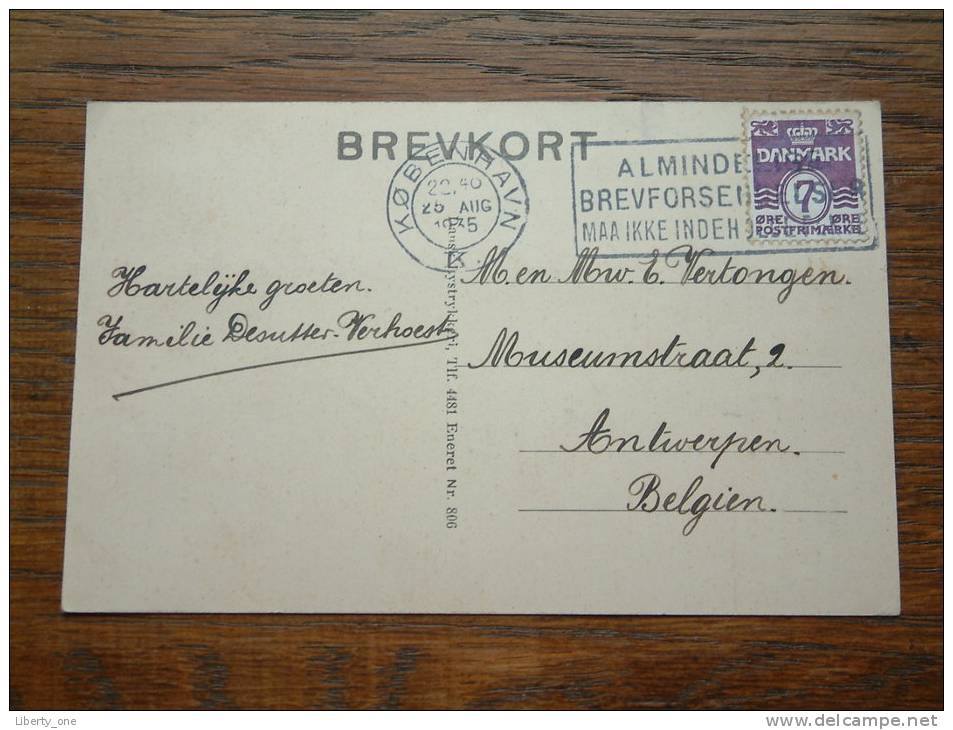 BREVKORT
KØBENHAVN
22.40
25 AUG
1935
K.
ALMINDE
BREVFORSEN
MAA IKKE INDEH
DANMARK
7
ØRE ØRE
POSTFRIMÆRKE
Hartelijke groeten.
Familie Desutter-Verhoest
M. en Mw. E. Vertongen.
Museumstraat, 2.
Antwerpen.
Belgien.
Dansk Lystrykkeri, Tlf. 4481 Eneret Nr. 806
Liberty_one
delcampe.net